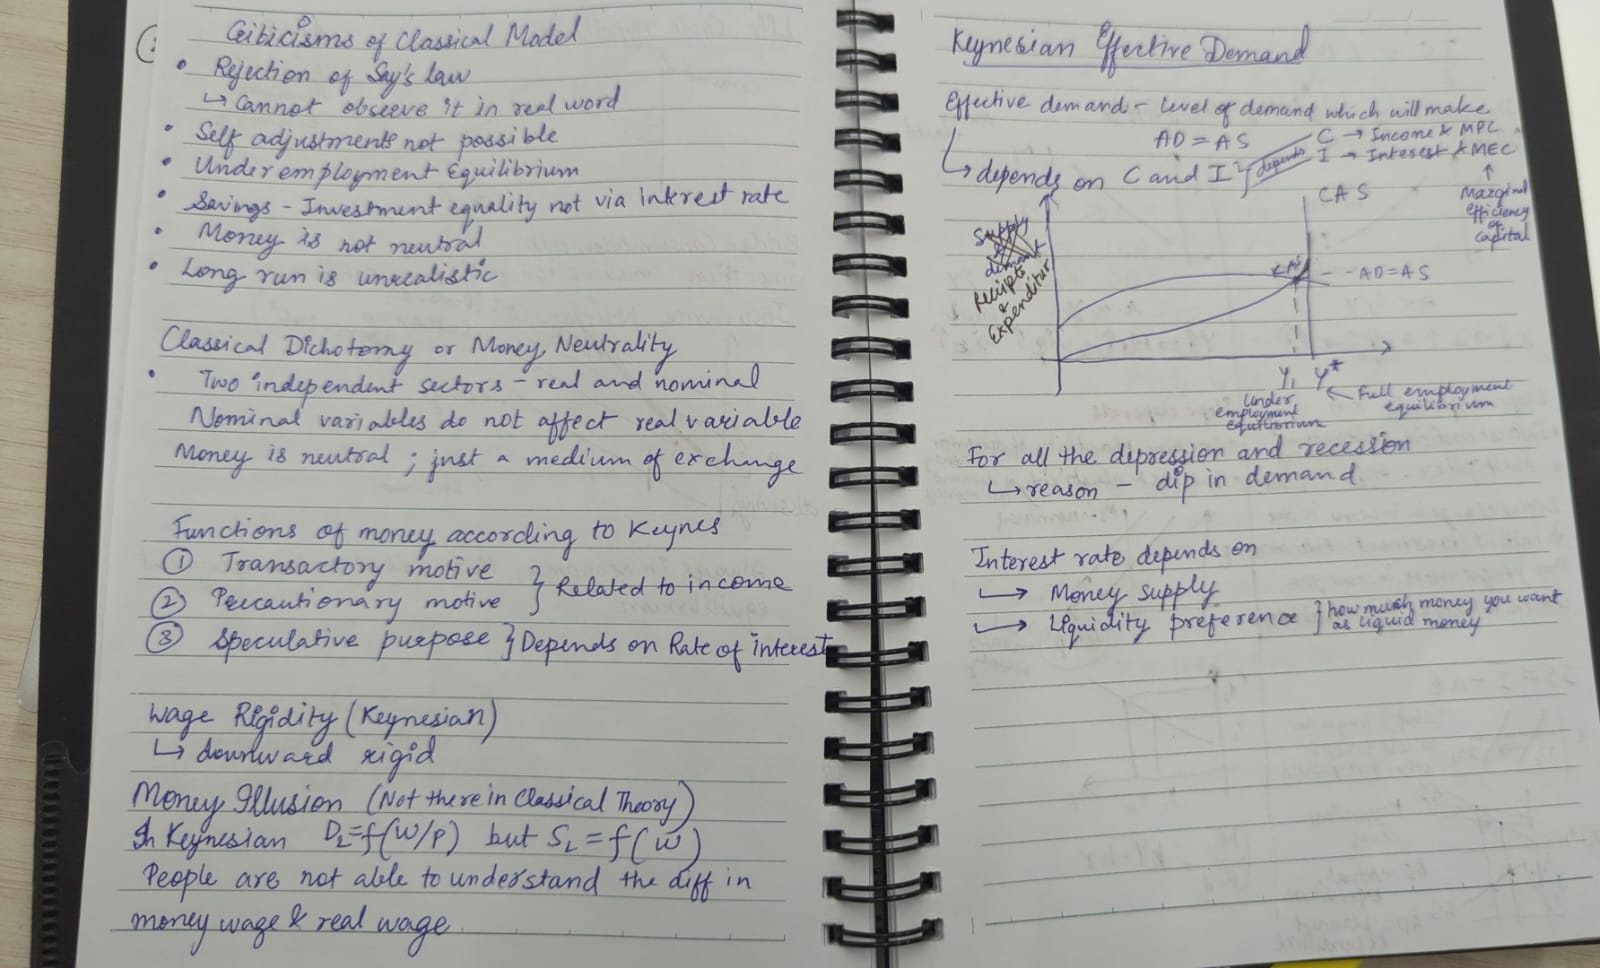 Criticisms of Classical Model
• Rejection of Say's law
↳ Cannot observe it in real word
• Self adjustments not possible
• Under employment Equilibrium
• Savings - Investment equality not via interest rate
• Money is not neutral
• Long run is unrealistic
Classical Dichotomy or Money Neutrality
• Two independent sectors - real and nominal
Nominal variables do not affect real variable
Money is neutral ; just a medium of exchange
Functions of money according to Keynes
① Transactory motive
② Precautionary motive } Related to income
③ Speculative purpose } Depends on Rate of interest
Wage Rigidity (Keynesian)
↳ downward rigid
Money Illusion (Not there in Classical Theory)
In Keynesian D_L = f(W/P) but S_L = f(W)
People are not able to understand the diff in
money wage & real wage.
Keynesian Effective Demand
Effective demand - level of demand which will make
AD = AS
↳ depends on C and I } depends
C → Income & MPC
I → Interest & MEC
↑
Marginal
efficiency
of
capital
Supply
demand
Reciepts
&
Expenditure
CAS
KAS
AD = AS
Y₁ Y*
Under
employment
equilibrium
← Full employment
equilibrium
For all the depression and recession
↳ reason - dip in demand
Interest rate depends on
→ Money supply
→ Liquidity preference } how much money you want
as liquid money